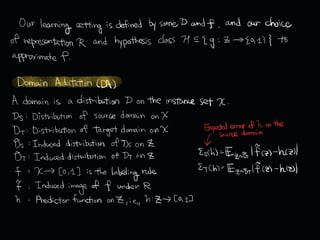 Our learning setting is defined by some D and f, and our choice
of representation R and hypothesis class H ⊆ {g : Z → {0,1}} to
approximate f.
Domain Adatation (DA)
A domain is a distribution D on the instance set X.
D_S : Distribution of source domain on X
D_T : Distribution of target domain on X
D̃_S : Induced distribution of D_S on Z
D̃_T : Induced distribution of D_T on Z
f : X → [0,1] is the labeling rule
f̃ : Induced image of f under R
h : Predictor function on Z, i.e., h: Z → [0,1]
Expected error of h on
the source domain
ε_S(h) = E_{z~D̃_S} |f̃(z) - h(z)|
ε_T(h) = E_{z~D̃_T} |f̃(z) - h(z)|